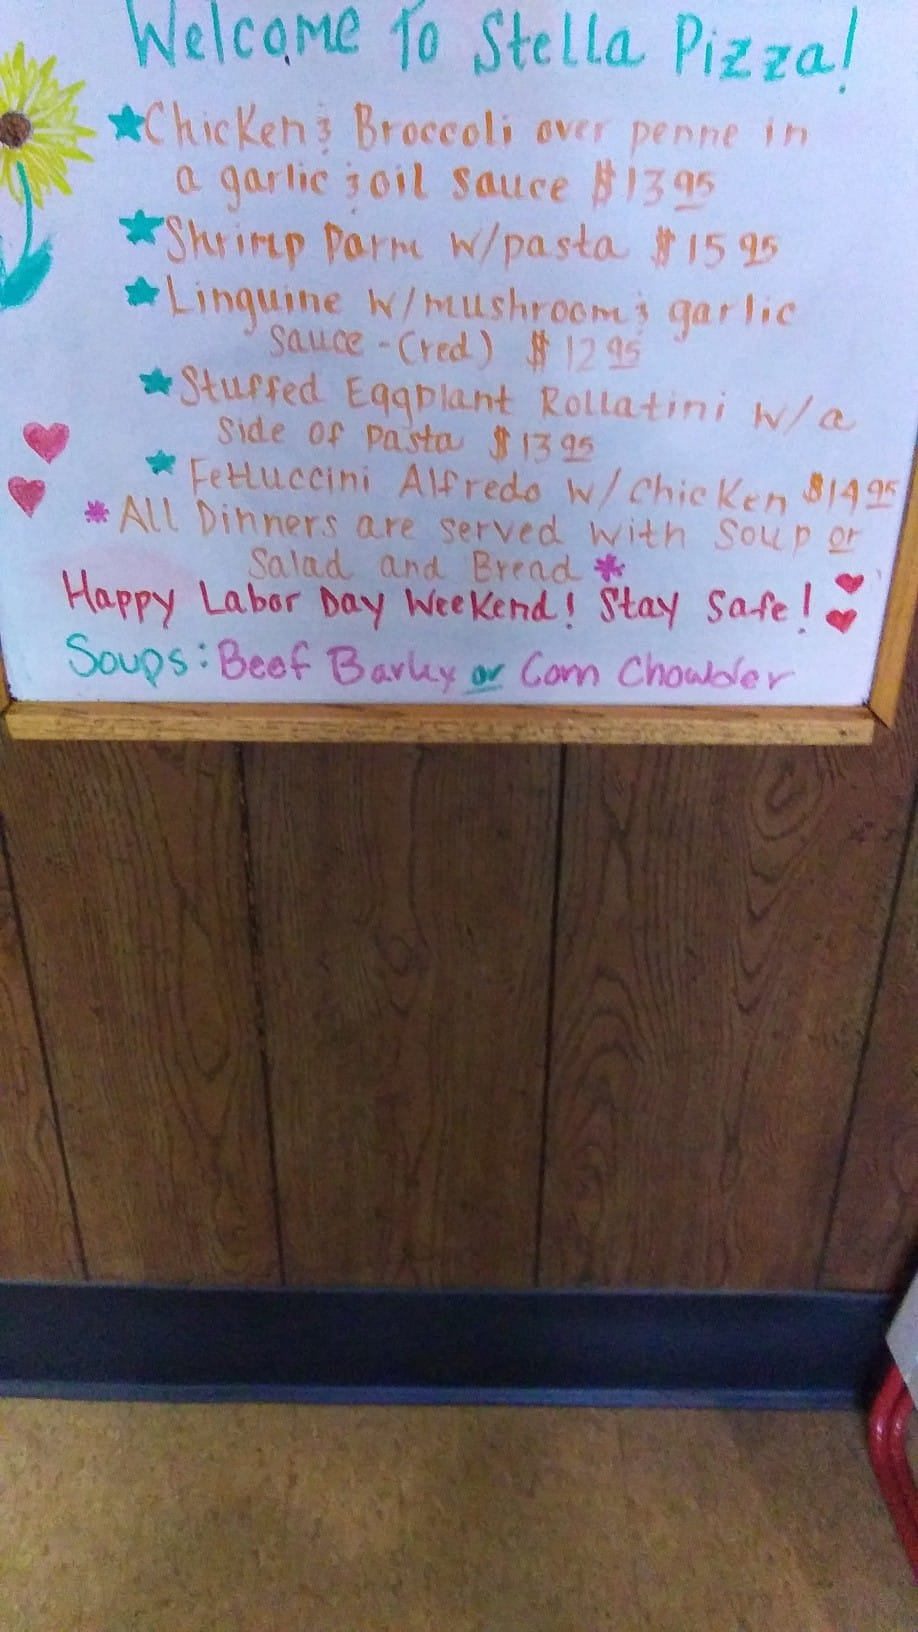 Welcome To Stella Pizza!
Chicken & Broccoli over penne in
a garlic & oil sauce $13.95
Shrimp Parm w/pasta $15.95
Linguine w/mushroom & garlic
sauce - (red) $12.95
Stuffed Eggplant Rollatini w/a
side of pasta $13.95
Fettuccini Alfredo w/chicken $14.95
*All Dinners are served with Soup or
Salad and Bread *
Happy Labor Day Weekend! Stay Safe!
Soups: Beef Barley or Corn Chowder